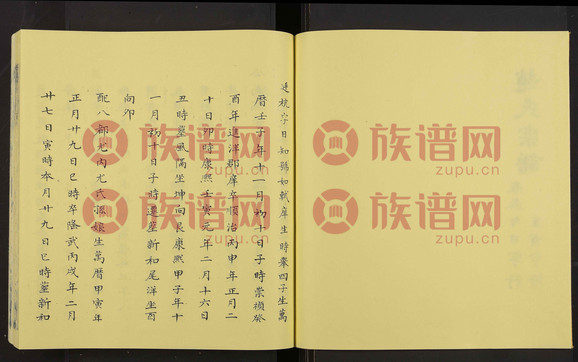 廷槐字日知賜如戟庠生時棄四子生萬
曆壬子年十一月初十日子時崇禎癸
酉年進泮郡庠卒順治丙申年正月二
十日卯時康熙壬寅元年二月十六日
丑時葬風隔坐坤向艮康熙甲子年十
一月初十日子時遷葬新和尾洋坐酉
向卯
配八都尤內尤氏 娘生萬曆甲寅年
正月廿九日巳時卒隆武丙戌年二月
廿七日寅時本月廿九日巳時葬新和
族谱网
zupu.cn
族谱网
zupu.cn
族谱网
zupu.cn
族谱网
zupu.cn